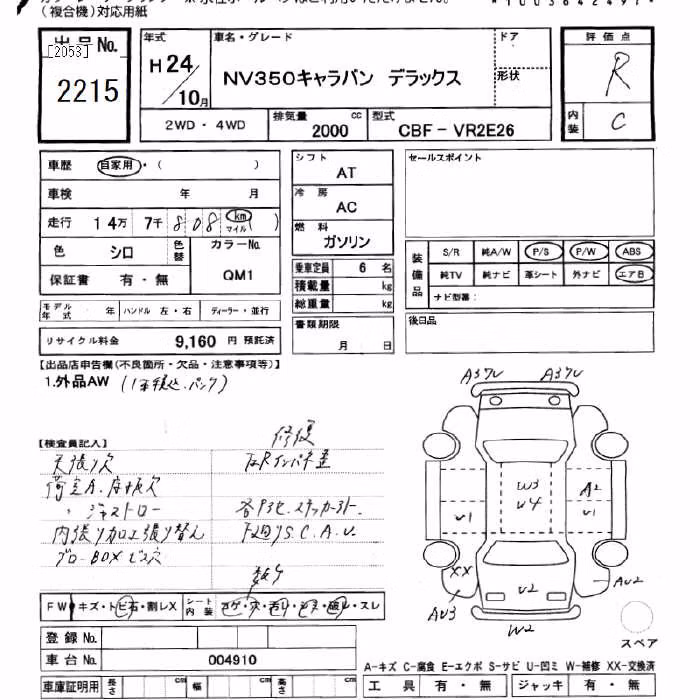 (複合機)対応用紙
出品No.
[2053]
2215
年式
H24/10月
車名・グレード
NV350キャラバン デラックス
ドア
形状
2WD・4WD
排気量 2000 cc
型式 CBF-VR2E26
評価点
R
内装
C
車歴 自家用・( )
車検 年 月
走行 14万 7千 808 km マイル ( )
色 シロ 色替
カラーNo. QM1
保証書 有・無
モデル年式 年 ハンドル 左・右 ディーラー・並行
リサイクル料金 9,160 円 預託済
シフト
AT
冷房
AC
燃料
ガソリン
乗車定員 6 名
積載量 kg
総重量 kg
書類期限
月 日
セールスポイント
装備品
S/R 純A/W P/S P/W ABS
純TV 純ナビ 革シート 外ナビ エアB
ナビ型番:
後日品
【出品店申告欄(不良箇所・欠品・注意事項等)】
1.外品AW
【検査員記入】
修復
天張り穴
内張り加工張り替え
A3 A3
W3
U4
U1
A2
U1
XX
AU3
U2
AU2
W2
スペア
FW キズ・トビ石・割レX シート内装 コゲ・穴・汚レ・シミ・破レ・スレ
登録No.
車台No. 004910
車庫証明用 長さ cm 幅 cm 高さ cm
A-キズ C-腐食 E-エクボ S-サビ U-凹ミ W-補修 XX-交換済
工具 有・無 ジャッキ 有・無